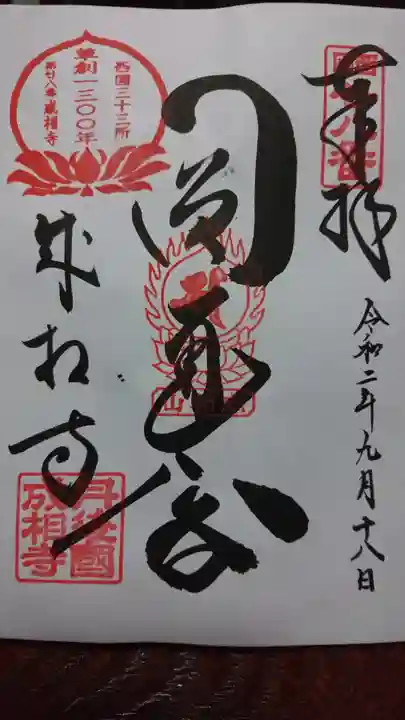 奉拝
令和二年九月十八日
圓通殿
成相寺
西国三十三所
草創一三〇〇年
第廿八番成相寺
丹後國
成相寺